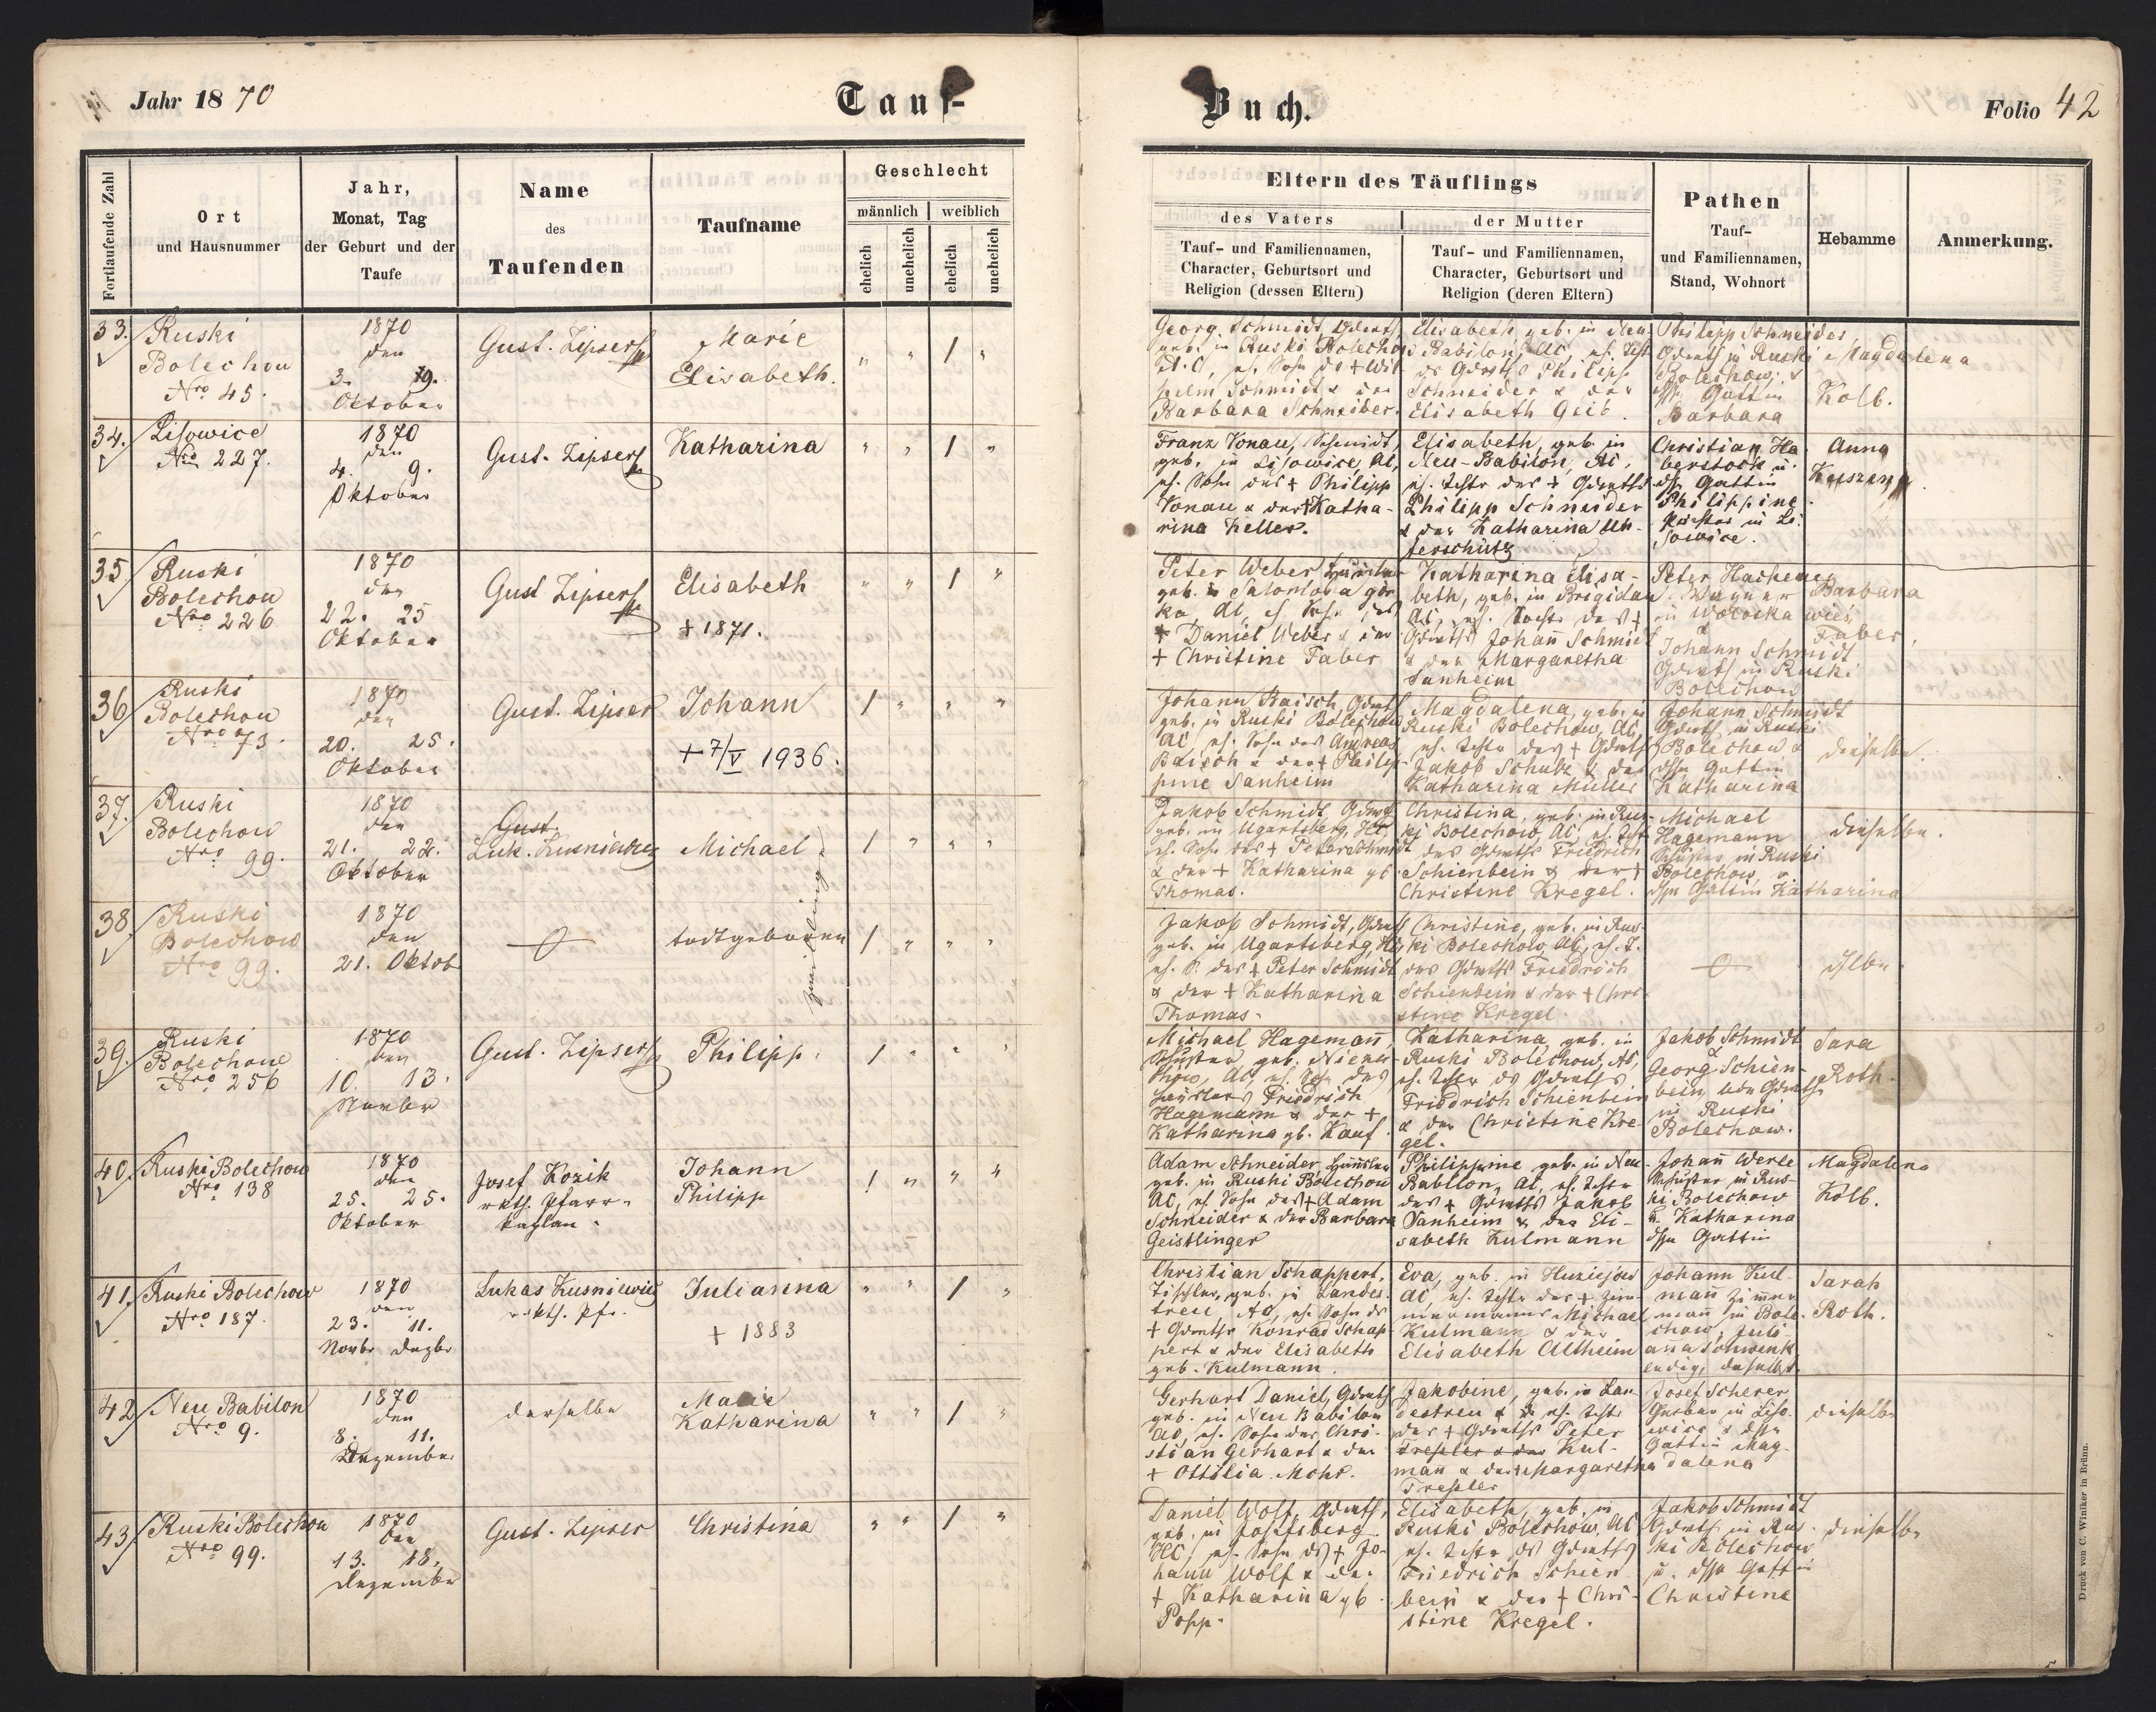 Jahr 1870
Tauf-
Buch.
Folio 42
Fortlaufende Zahl
Ort
und Hausnummer
Jahr,
Monat, Tag
der Geburt und der
Taufe
Name
des
Taufenden
Taufname
Geschlecht
männlich
weiblich
ehelich
unehelich
ehelich
unehelich
Eltern des Täuflings
des Vaters
Tauf- und Familiennamen,
Character, Geburtsort und
Religion (dessen Eltern)
der Mutter
Tauf- und Familiennamen,
Character, Geburtsort und
Religion (deren Eltern)
Pathen
Tauf-
und Familiennamen,
Stand, Wohnort
Hebamme
Anmerkung.
33.
Ruski
Bolechow
Nro 45.
1870
den
3. 9.
Oktober
Gust. Zipser
Marie
Elisabeth.
" " / "
Georg Schmidt,
geb. in Ruski Bolechow
A.C, eh. Sohn des + Wil-
helm Schmidt & der
Barbara Schneiber.
Elisabeth geb. in Neu
Babilon, AC, eh.
Philipp
Schneider & der
Elisabeth Geib.
Philipp Schneider
in Ruski
Bolechow &
Gattin
Barbara
Magdalena
Kolb.
34.
Lisowice
Nro 227.
1870
den
4. 9.
Oktober
Gust. Zipser
Katharina
" " / "
Franz Vonau, Schmidt,
geb. in Lisowice, AC,
eh. Sohn des + Philipp
Vonau & der + Katha-
rina Keller.
Elisabeth, geb. in
Neu-Babilon, AC,
eh. Tochter des +
Philipp Schneider
& der Katharina Un-
terschütz
Christian Ha-
berstock u.
Gattin
Philippine
in Li-
sowice.
Anna
35
Ruski
Bolechow
Nro 226
1870
den
22. 25
Oktober
Gust Zipser
Elisabeth
+ 1871.
" " / "
Peter Weber
geb. in Salamoba gór-
ka, AC, eh. Sohn des
+ Daniel Weber & der
+ Christine Faber
Katharina Elisa-
beth, geb. in Brigidau
AC, eh. Tochter des +
Johan̄ Schmidt
& der Margaretha
Sanheim
Peter Hachem
Wagner
in Wołoska wieś
Johann Schmidt
in Ruski
Bolechow
Barbara
Faber.
36
Ruski
Bolechow
Nro 73.
1870
den
20. 25.
Oktober
Gust. Zipser
Johann
+ 7/V 1936.
/ " " "
Johann Baisch,
geb. in Ruski Bolechow
AC, eh. Sohn des Andreas
Baisch & der + Philip-
pine Sanheim
Magdalena, geb. in
Ruski Bolechow, AC,
eh. Tochter des +
Jakob Schutz & der
Katharina Müller
Johann Schmidt
in Ruski
Bolechow &
Gattin
Katharina
dieselbe.
37.
Ruski
Bolechow
Nro 99.
1870
den
21. 22.
Oktober
Gust.
Luk. Kusniewicz
Michael
/ " " "
zwillinge
Jakob Schmidt,
geb. in Ugartsberg, HC,
eh. Sohn des + Peter Schmidt
& der + Katharina gb.
Thomas.
Christina, geb. in Rus-
ki Bolechow, AC, eh.
des Friedrich
Schienbein & der +
Christine Kregel.
Michael
Hagemann
Schuster in Ruski
Bolechow, u.
Gattin Katharina
dieselbe.
38.
Ruski
Bolechow
Nro 99.
1870
den
21. Oktob
todtgeboren
/ " " "
Jakob Schmidt,
geb. in Ugartsberg, HC,
eh. S. des + Peter Schmidt
& der + Katharina
Thomas.
Christine, geb. in Rus-
ki Bolechow, AC, eh. T.
des Friedrich
Schienbein & der + Chri-
stine Kregel.
39.
Ruski
Bolechow
Nro 256
1870
den
10. 13.
Novbr
Gust. Zipser
Philipp.
/ " " "
Michael Hageman̄,
Schuster, geb.
AC, eh. Sohn des
Friedrich
Hagemann & der +
Katharina gb. Kauf.
Katharina, geb. in
Ruski Bolechow, AC,
eh. Tochter des
Friedrich Schienbein
& der Christine Kre-
gel.
Jakob Schmidt
&
Georg Schien-
bein
in Ruski
Bolechow.
Sara
Roth.
40.
Ruski Bolechow
Nro 138
1870
den
25. 25.
Oktober
Josef Kozik
rkth. Pfarr-
kaplan.
Johann
Philipp
/ " " "
Adam Schneider,
geb. in Ruski Bolechow
AC, eh. Sohn des + Adam
Schneider & der Barbara
Geistlinger
Philippine geb. in Neu
Babilon, AC, eh. Tochter
des + Jakob
Sanheim & der Eli-
sabeth Kulmann
Johan̄ Werle
Schuster in Rus-
ki Bolechow
u. Katharina
Gattin
Magdalena
Kolb.
41.
Ruski Bolechow
Nro 187.
1870
den
23. 11.
Novbr Dezbr
Lukas Kusniewicz
rkth. Pfr.
Julianna
+ 1883
" " / "
Christian Schappert,
Tischler, geb. in Landes-
treu, AC, eh. Sohn des
+ Konrad Schap-
pert & der Elisabeth
geb. Kulmann.
Eva, geb. in Huziejow
AC eh. Tochter des + Zim-
mermanns Michael
Kulmann & der
Elisabeth Altheim
Johann Kul-
man̄ Zimmer-
mann in Bole-
chow, Juli-
an̄a Schwenk,
ledig, daselbst
Sarah
Roth.
42
Neu Babilon
Nro 9.
1870
den
8. 11.
Dezember
derselbe
Marie
Katharina
" " / "
Gerhart Daniel,
geb. in Neu Babilon
AC, eh. Sohn des Chri-
stian Gerhart & der
+ Ottilia Mohr.
Jakobine, geb. in Lan-
destreu eh. Tochter
des + Peter
Kul-
man̄ & der + Margaretha
Tressler
Josef Scherer
Gerber in Liso-
wice &
Gattin Mag-
dalena
dieselbe
43
Ruski Bolechow
Nro 99.
1870
den
13. 18.
Dezember
Gust. Zipser
Christina
" " / "
Daniel Wolf,
geb. in Josefsberg
HC, eh. Sohn des + Jo-
hann Wolf & der
+ Katharina gb.
Popp.
Elisabeth, geb. in
Ruski Bolechow, AC
eh. Tochter des
Friedrich Schien-
bein & der + Chri-
stine Kregel.
Jakob Schmidt
in Rus-
ki Bolechow
u. Gattin
Christine
dieselbe
Druck von C. Winiker in Brünn.